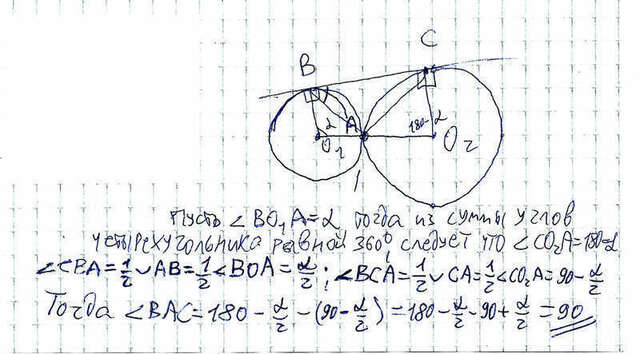 B
C
α
A
180-α
O₁
O₂
Пусть ∠BO₁A=α, тогда из суммы углов
четырехугольника равной 360° следует что ∠CO₂A=180-α
∠CBA=½◡AB=½∠BOA=α/2; ∠BCA=½◡CA=½∠CO₂A=90-α/2
Тогда ∠BAC=180-α/2-(90-α/2)=180-α/2-90+α/2=90